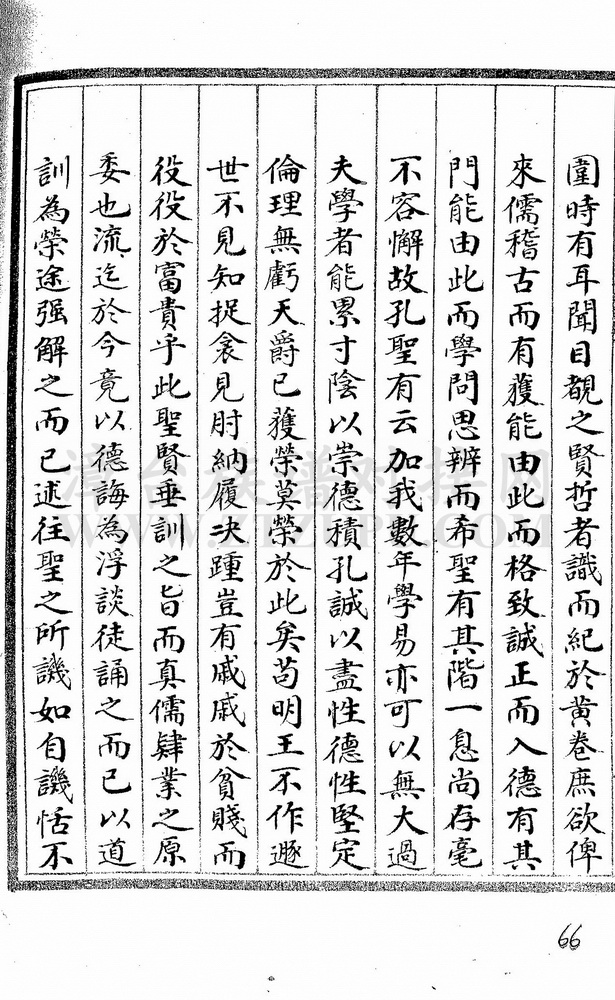 圍時有耳聞目覩之賢哲者識而紀於黄卷庶欲俾
來儒稽古而有獲能由此而格致誠正而入德有其
門能由此而學問思辨而希聖有其階一息尚存毫
不容懈故孔聖有云加我數年學易亦可以無大過
夫學者能累寸陰以崇德積孔誠以盡性德性堅定
倫理無虧天爵已獲榮莫榮於此矣苟明王不作遯
世不見知捉衾見肘納履决踵豈有戚戚於貧賤而
役役於富貴乎此聖賢垂訓之旨而真儒肄業之原
委也流迄於今竟以德誨為浮談徒誦之而已以道
訓為榮途强解之而已述往聖之所譏如自譏恬不
漳台族譜對接網
WWW.ZTZUPU.COM
66